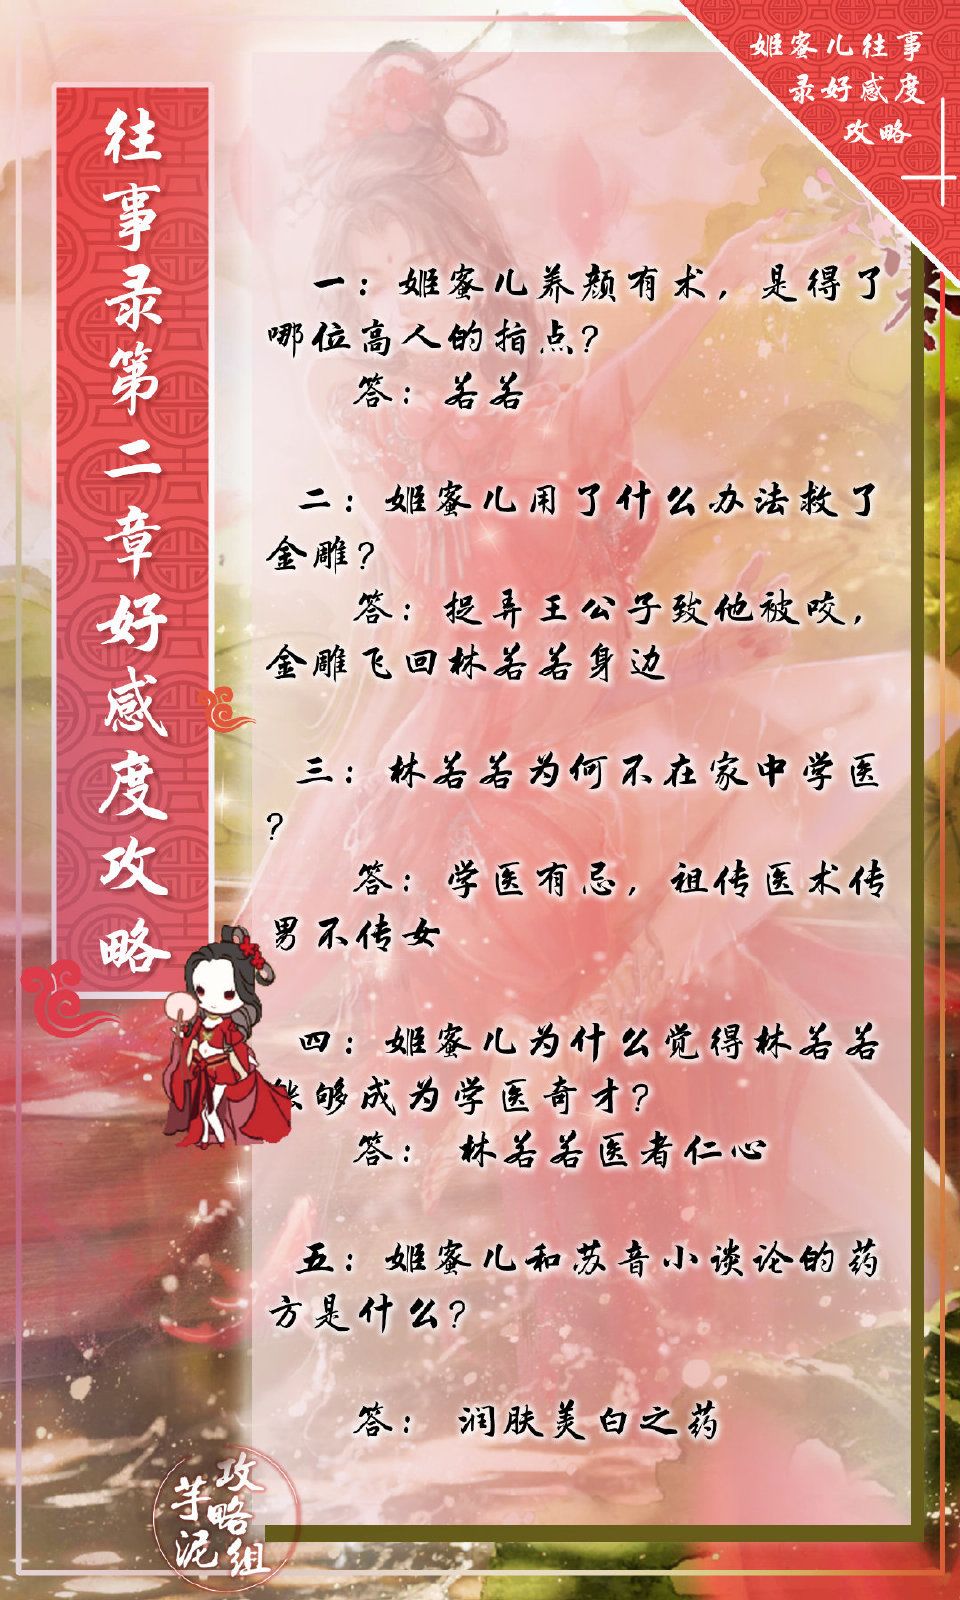 姬蜜儿往事
录好感度
攻略
往事录第二章好感度攻略
一：姬蜜儿养颜有术，是得了
哪位高人的指点？
答：若若
二：姬蜜儿用了什么办法救了
金雕？
答：捉弄王公子致他被咬，
金雕飞回林若若身边
三：林若若为何不在家中学医
？
答：学医有忌，祖传医术传
男不传女
四：姬蜜儿为什么觉得林若若
能够成为学医奇才？
答：林若若医者仁心
五：姬蜜儿和苏音小谈论的药
方是什么？
答：润肤美白之药
攻略组
芋泥